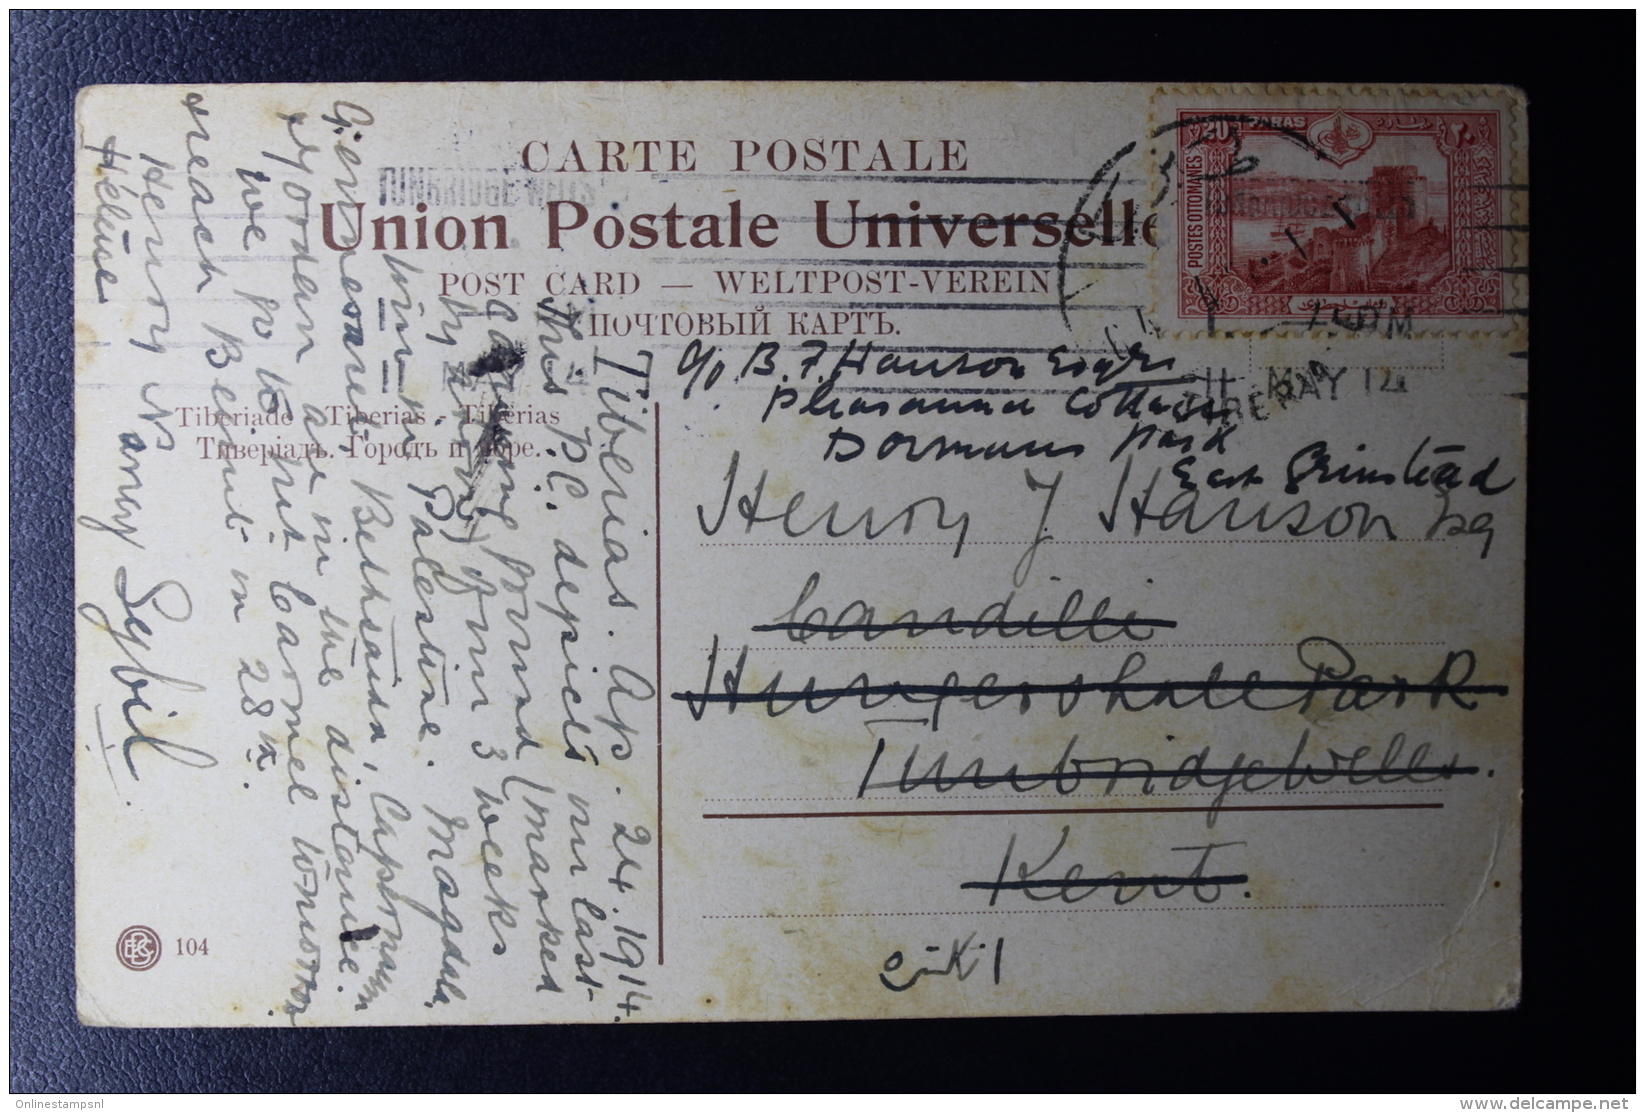 CARTE POSTALE
Union Postale Universelle
POST CARD — WELTPOST-VEREIN
ПОЧТОВЫЙ КАРТЪ.
Tiberiade - Tiberias - Tibérias
Тиверіадъ. Городъ и море.
20 PARAS
POSTES OTTOMANES
TUNBRIDGE WELLS
11 MAY 14
c/o B. F. Hanson Esqre
Pleasaunce Cottage
Dormans Park
East Grinstead
Henry J. Hanson Esq
Candilli
Hungershall Park
Tunbridge Wells.
Kent.
Tiberias. Ap. 24. 1914.
This P.C. depicts our last
camping ground (marked
by
tour in Palestine. Magdala,
Gennesaret, Bethsaida, Capernaum
Jordan are in the distance.
We go to Mt Carmel tomorrow
reach Beirut on 28th.
Henry
Hélène
Sybil
104
TIBERIAS
Onlinestampsnl
delcampe.net